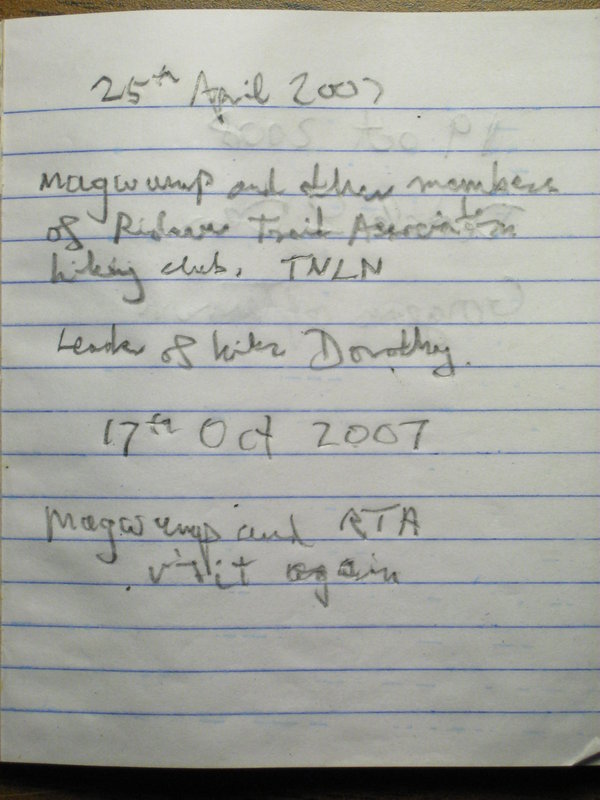 25th April 2007
Magwump and other members
of Rideau Trail Association
hiking club. TNLN
Leader of hike Dorothy.
17th Oct 2007
Magwump and RTA
visit again